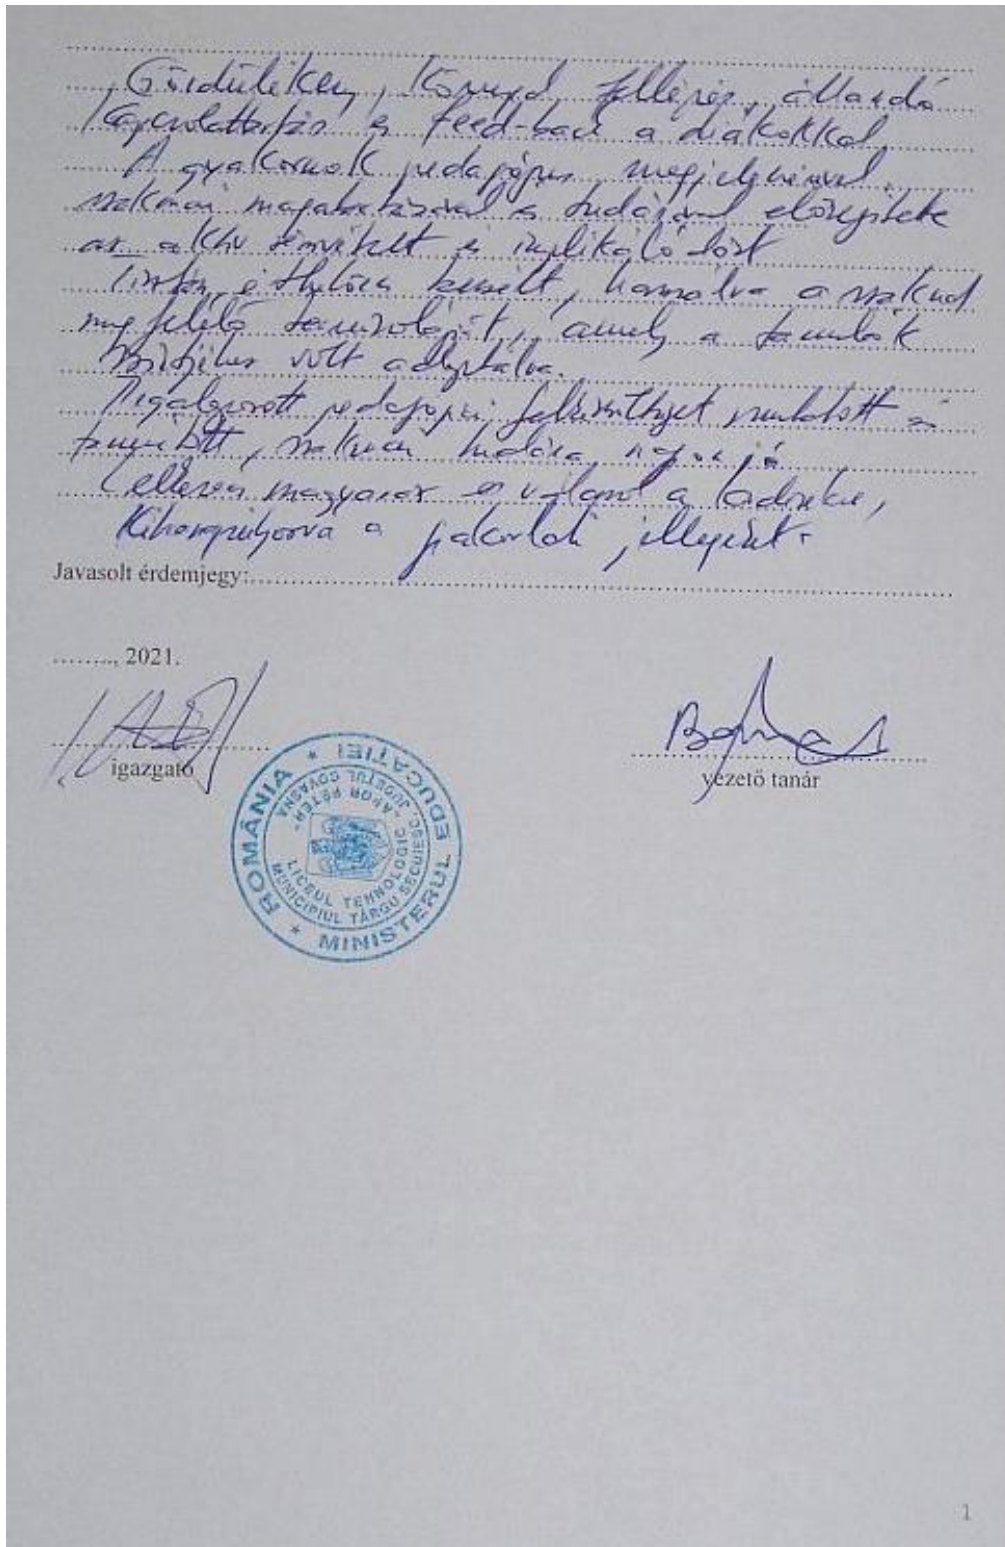 Gördülékeny, könnyed fellépés, állandó
kapcsolattartás és feed-back a diákokkal.
A gyakornok pedagógus megjelenésével,
szakmai magatartásával és tudásával elősegítette
az aktív részvételt és implikálódást
Tisztán, érthetően beszélt, használva a szaknak
megfelelő terminológiát, amely a tanulók
szintjéhez volt adaptálva.
pedagógiai felkészültséget mutatott és
szakmai tudása nagyon jó
magyaráz és válaszol a kérdésekre,
Kihangsúlyozva a gyakorlati jellegét.
Javasolt érdemjegy:
........, 2021.
igazgató
vezető tanár
ROMÂNIA * MINISTERUL EDUCAȚIEI *
LICEUL TEHNOLOGIC "APOR PÉTER"
MUNICIPIUL TÂRGU SECUIESC, JUDEȚUL COVASNA
1